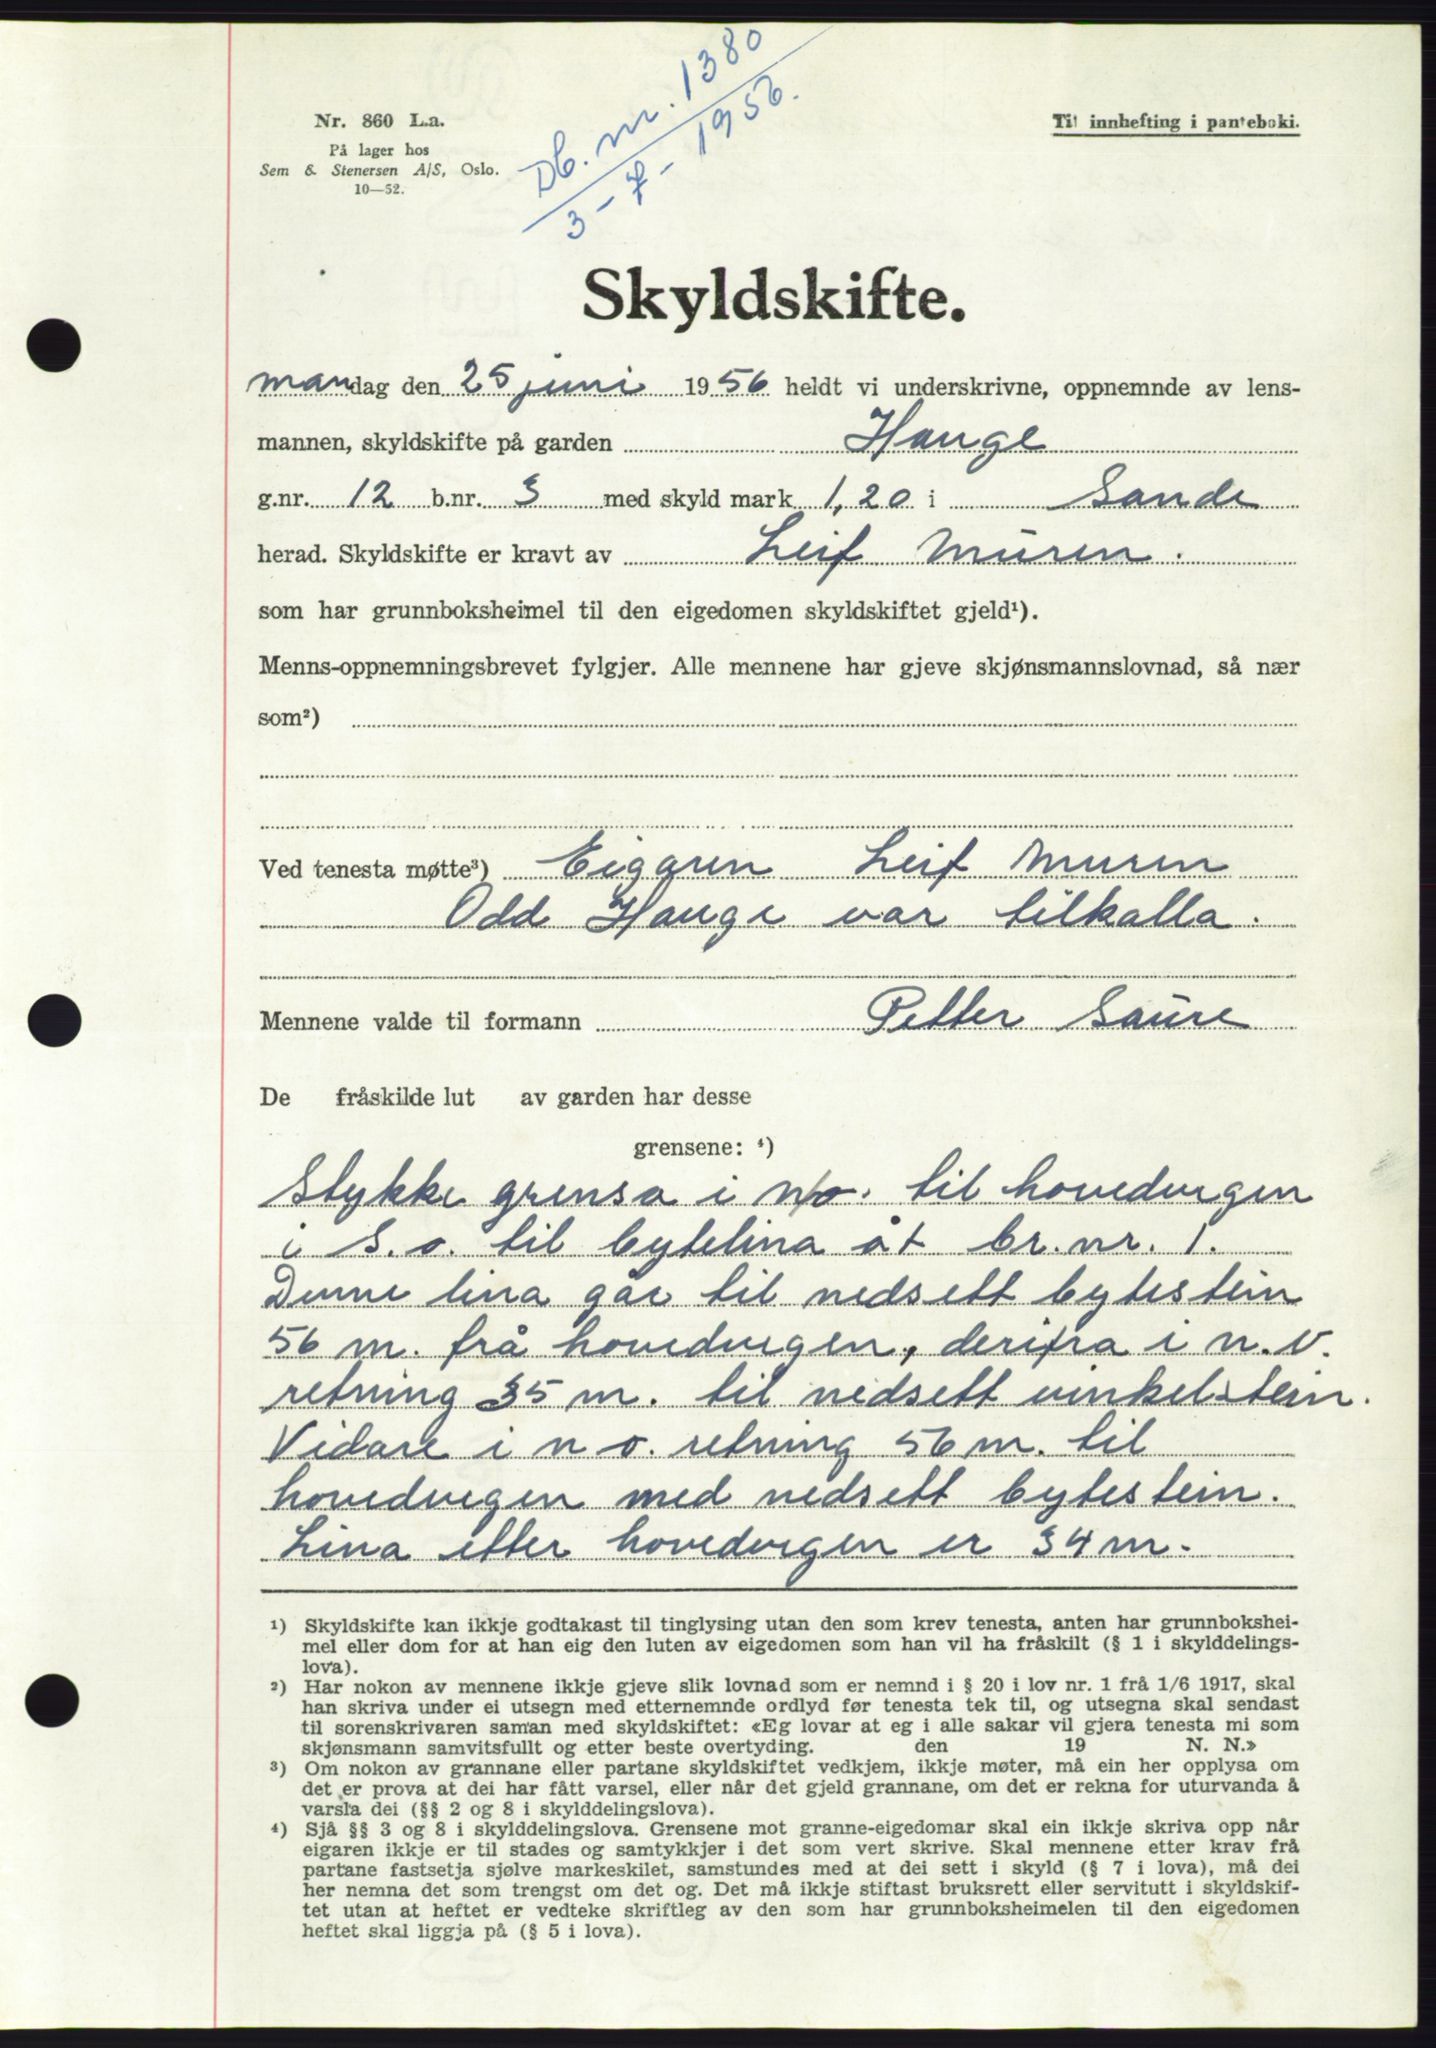 Db. nr. 1380
3-7-1956.
Nr. 860 L.a.
På lager hos
Sem & Stenersen A/S, Oslo.
10—52.
Til innhefting i panteboki.
Skyldskifte.
mandag den 25 juni 1956 heldt vi underskrivne, oppnemnde av lens-
mannen, skyldskifte på garden Hauge
g.nr. 12 b.nr. 3 med skyld mark 1,20 i Sande
herad. Skyldskifte er kravt av Leif Muren.
som har grunnboksheimel til den eigedomen skyldskiftet gjeld¹).
Menns-oppnemningsbrevet fylgjer. Alle mennene har gjeve skjønsmannslovnad, så nær
som²)
Ved tenesta møtte³) Eigaren Leif Muren
Odd Hauge var tilkalla.
Mennene valde til formann Petter Saure
De fråskilde lut av garden har desse
grensene: ⁴)
Stykke grensa i n/o. til hovedvegen
i S.o. til bytelina åt br.nr. 1.
Denne lina går til nedsett bytestein
56 m. frå hovedvegen, derifra i n.v.
retning 35 m. til nedsett vinkelstein.
Vidare i n o. retning 56 m. til
hovedvegen med nedsett bytestein.
Lina etter hovedvegen er 34 m.
¹) Skyldskifte kan ikkje godtakast til tinglysing utan den som krev tenesta, anten har grunnbokshei-
mel eller dom for at han eig den luten av eigedomen som han vil ha fråskilt (§ 1 i skylddelings-
lova).
²) Har nokon av mennene ikkje gjeve slik lovnad som er nemnd i § 20 i lov nr. 1 frå 1/6 1917, skal
han skriva under ei utsegn med etternemnde ordlyd før tenesta tek til, og utsegna skal sendast
til sorenskrivaren saman med skyldskiftet: «Eg lovar at eg i alle sakar vil gjera tenesta mi som
skjønsmann samvitsfullt og etter beste overtyding. den 19 N. N.»
³) Om nokon av grannane eller partane skyldskiftet vedkjem, ikkje møter, må ein her opplysa om
det er prova at dei har fått varsel, eller når det gjeld grannane, om det er rekna for uturvanda å
varsla dei (§§ 2 og 8 i skylddelingslova).
⁴) Sjå §§ 3 og 8 i skylddelingslova. Grensene mot granne-eigedomar skal ein ikkje skriva opp når
eigaren ikkje er til stades og samtykkjer i det som vert skrive. Skal mennene etter krav frå
partane fastsetja sjølve markeskilet, samstundes med at dei sett i skyld (§ 7 i lova), må dei
her nemna det som trengst om det og. Det må ikkje stiftast bruksrett eller servitutt i skyldskif-
tet utan at heftet er vedteke skriftleg av den som har grunnboksheimelen til den eigedomen
heftet skal liggja på (§ 5 i lova).